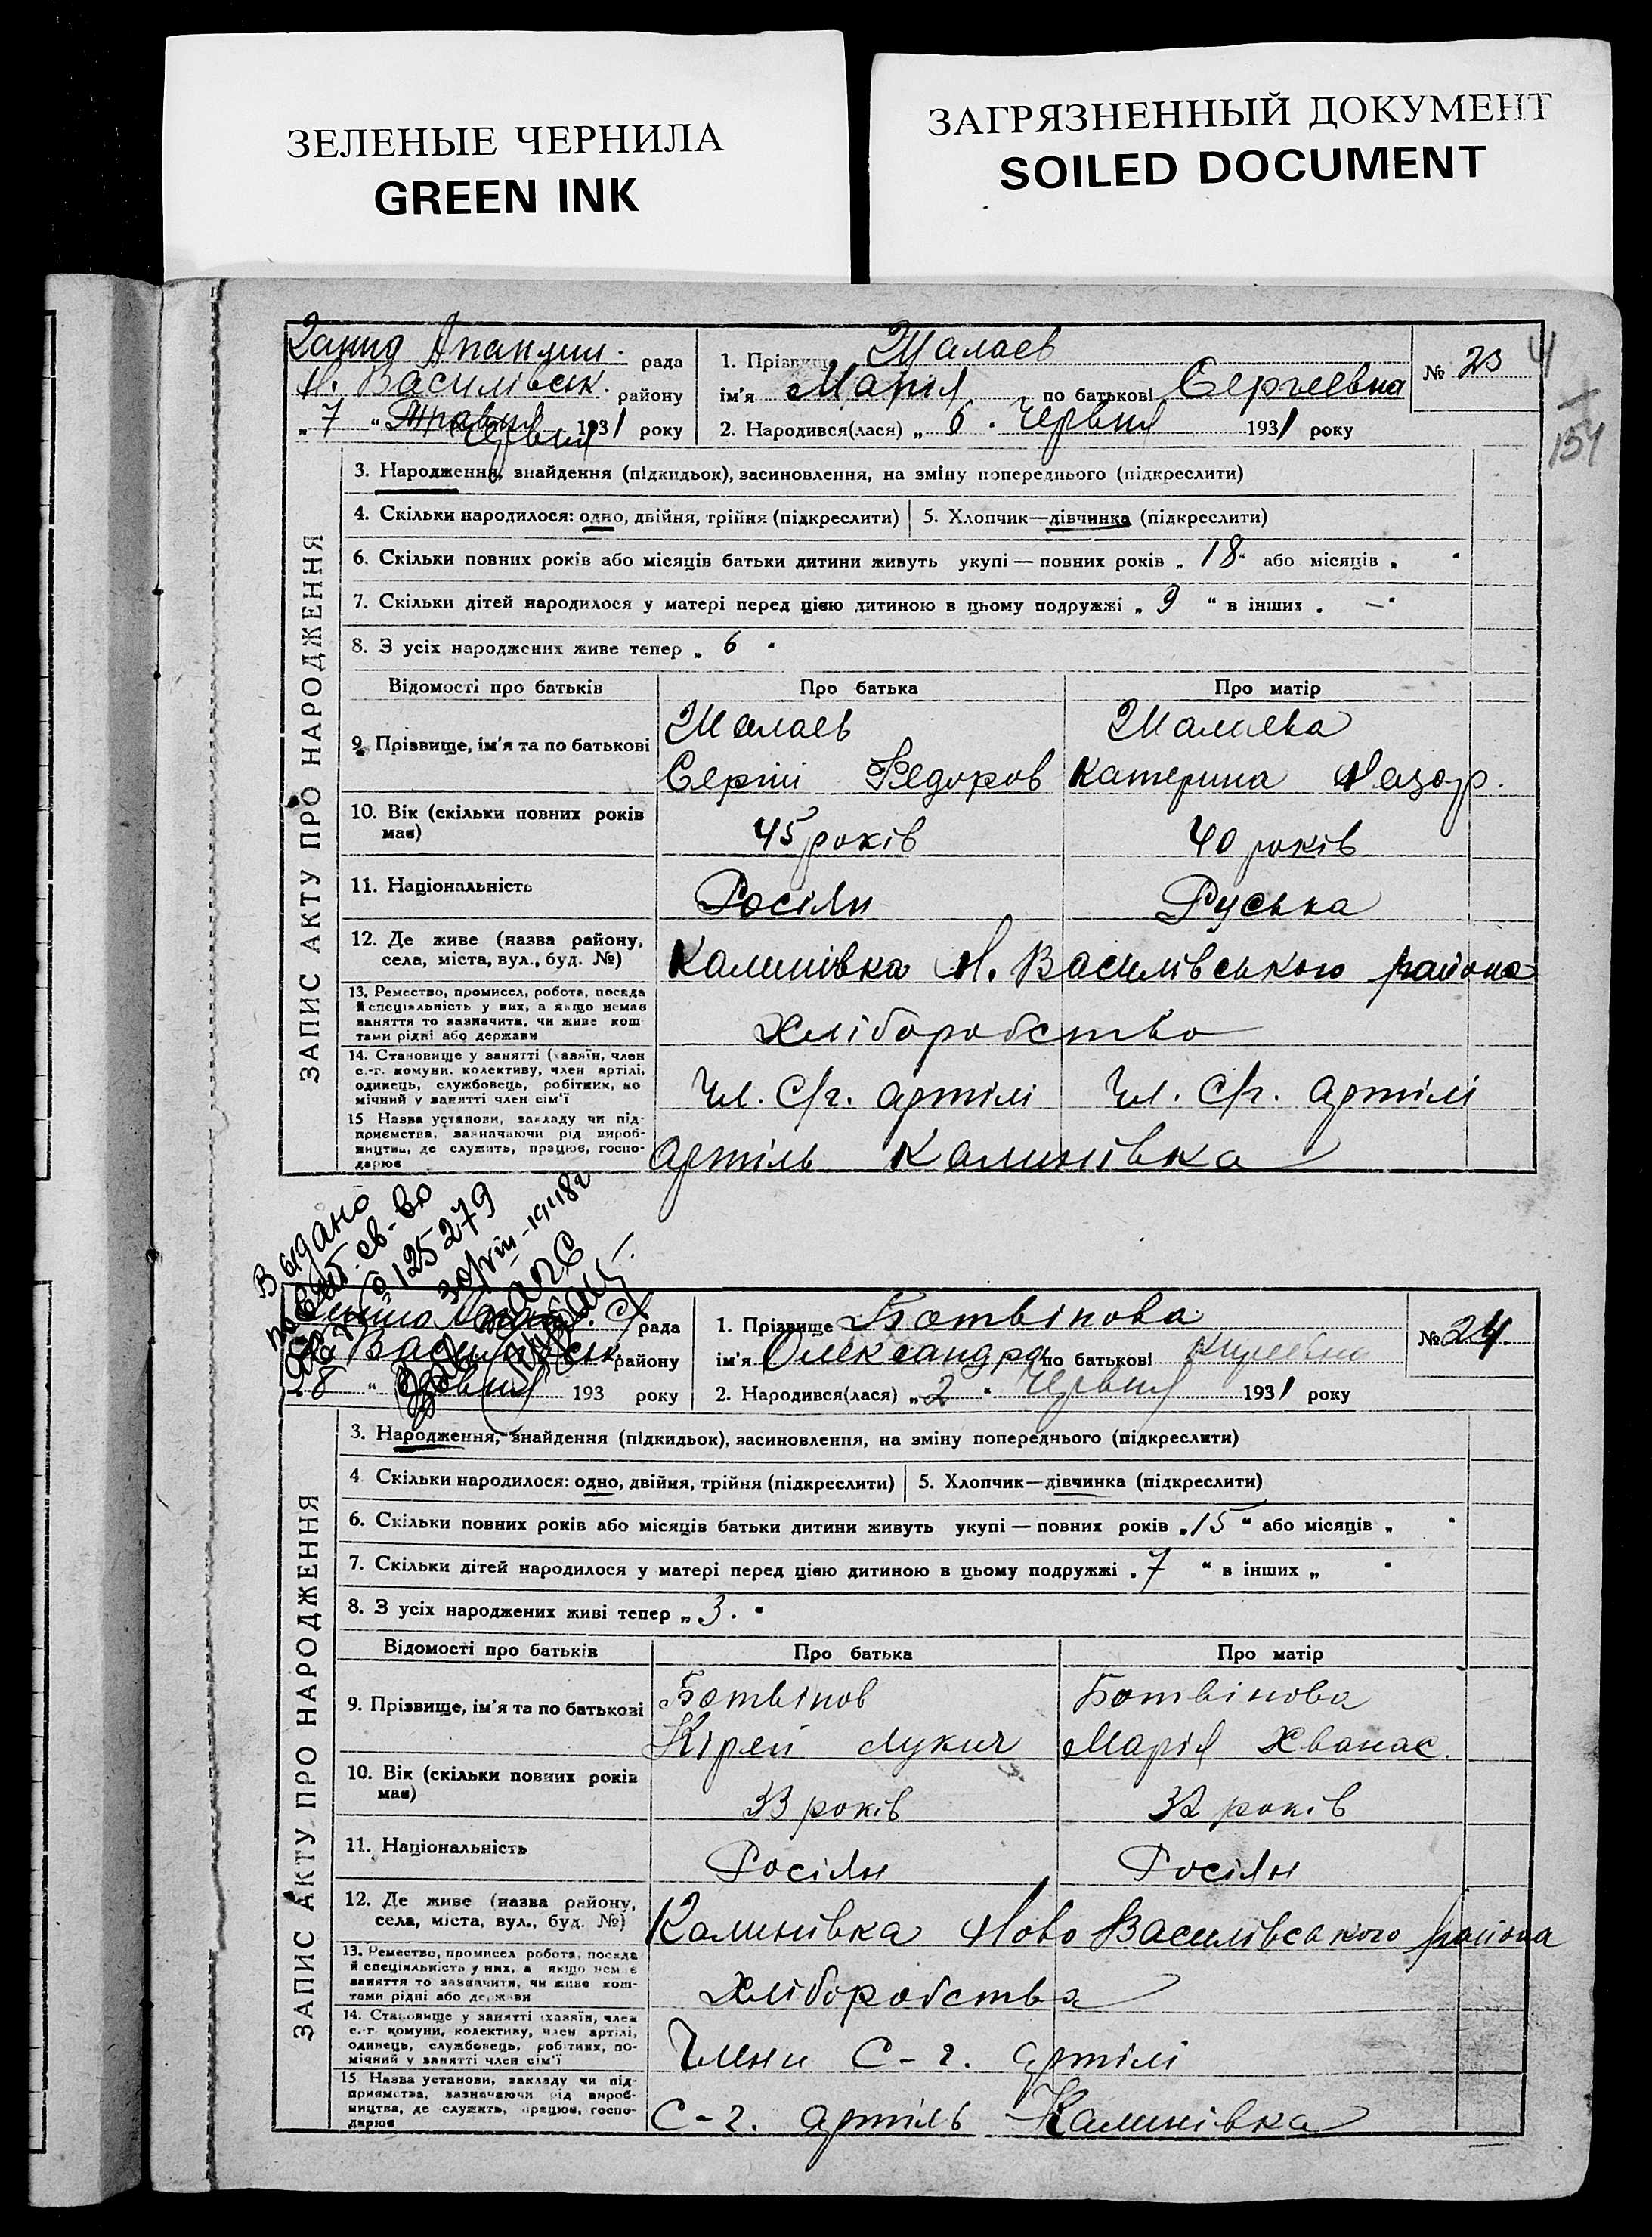 ЗЕЛЕНЫЕ ЧЕРНИЛА
GREEN INK
ЗАГРЯЗНЕННЫЙ ДОКУМЕНТ
SOILED DOCUMENT
4
151
ЗАПИС АКТУ ПРО НАРОДЖЕННЯ
рада
Н. Василівськ. району
„ 7 “ Червня 1931 року
1. Прізвище Шалаев
ім'я Марія по батькові Сергеевна
2. Народився(лася) „ 6 “ Червня 1931 року
№ 23
3. Народження, знайдення (підкидьок), засиновлення, на зміну попереднього (підкреслити)
4. Скільки народилося: одно, двійня, трійня (підкреслити) 5. Хлопчик—дівчинка (підкреслити)
6. Скільки повних років або місяців батьки дитини живуть укупі — повних років „ 18 “ або місяців „ “
7. Скільки дітей народилося у матері перед цією дитиною в цьому подружжі „ 9 “ в інших „ — “
8. З усіх народжених живе тепер „ 6 “
Відомості про батьків Про батька Про матір
9. Прізвище, ім'я та по батькові Шалаев Шалаева
Сергій Федоров Катерина Назар.
10. Вік (скільки повних років має) 45 років 40 років
11. Національність Росіян Руська
12. Де живе (назва району, села, міста, вул., буд. №) Калинівка Н. Василівського района
13. Ремество, промисел, робота, посада й спеціяльність у них, а якщо немає заняття то зазначити, чи живе коштами рідні або держави Хліборобство
14. Становище у занятті (хазяїн, член с.-г. комуни, колективу, член артілі, одинець, службовець, робітник, помічний у занятті член сім'ї Чл. С/г. артілі Чл. С/г. артілі
15 Назва установи, закладу чи підприємства, зазначаючи рід виробництва, де служить, працює, господарює Артіль Калинівка
Выдано
повт. св-во
125279
30/VIII-1948г
ЗАПИС АКТУ ПРО НАРОДЖЕННЯ
рада
Василівськ району
„ 8 “ Червня 193 року
1. Прізвище Ботвінова
ім'я Олександра по батькові Киреевна
2. Народився(лася) „ 2 “ Червня 1931 року
№ 24
3. Народження, знайдення (підкидьок), засиновлення, на зміну попереднього (підкреслити)
4. Скільки народилося: одно, двійня, трійня (підкреслити) 5. Хлопчик—дівчинка (підкреслити)
6. Скільки повних років або місяців батьки дитини живуть укупі — повних років „ 15 “ або місяців „ “
7. Скільки дітей народилося у матері перед цією дитиною в цьому подружжі „ 7 “ в інших „ “
8. З усіх народжених живі тепер „ 3. “
Відомості про батьків Про батька Про матір
9. Прізвище, ім'я та по батькові Ботвінов Ботвінова
Кірей Лукич Марія Хванас.
10. Вік (скільки повних років має) 33 років 32 років
11. Національність Росіян Росіян
12. Де живе (назва району, села, міста, вул., буд. №) Калинівка Ново Василівського района
13. Ремество, промисел робота, посада й спеціяльність у них, а якщо немає заняття то зазначити, чи живе коштами рідні або держави Хліборобства
14. Становище у занятті (хазяїн, член с.-г комуни, колективу, член артілі, одинець, службовець, робітник, помічний у занятті член сім'ї Члени С-г. артілі
15 Назва установи, закладу чи підприємства, зазначаючи рід виробництва, де служить, працює, господарює С-г. артіль Калинівка